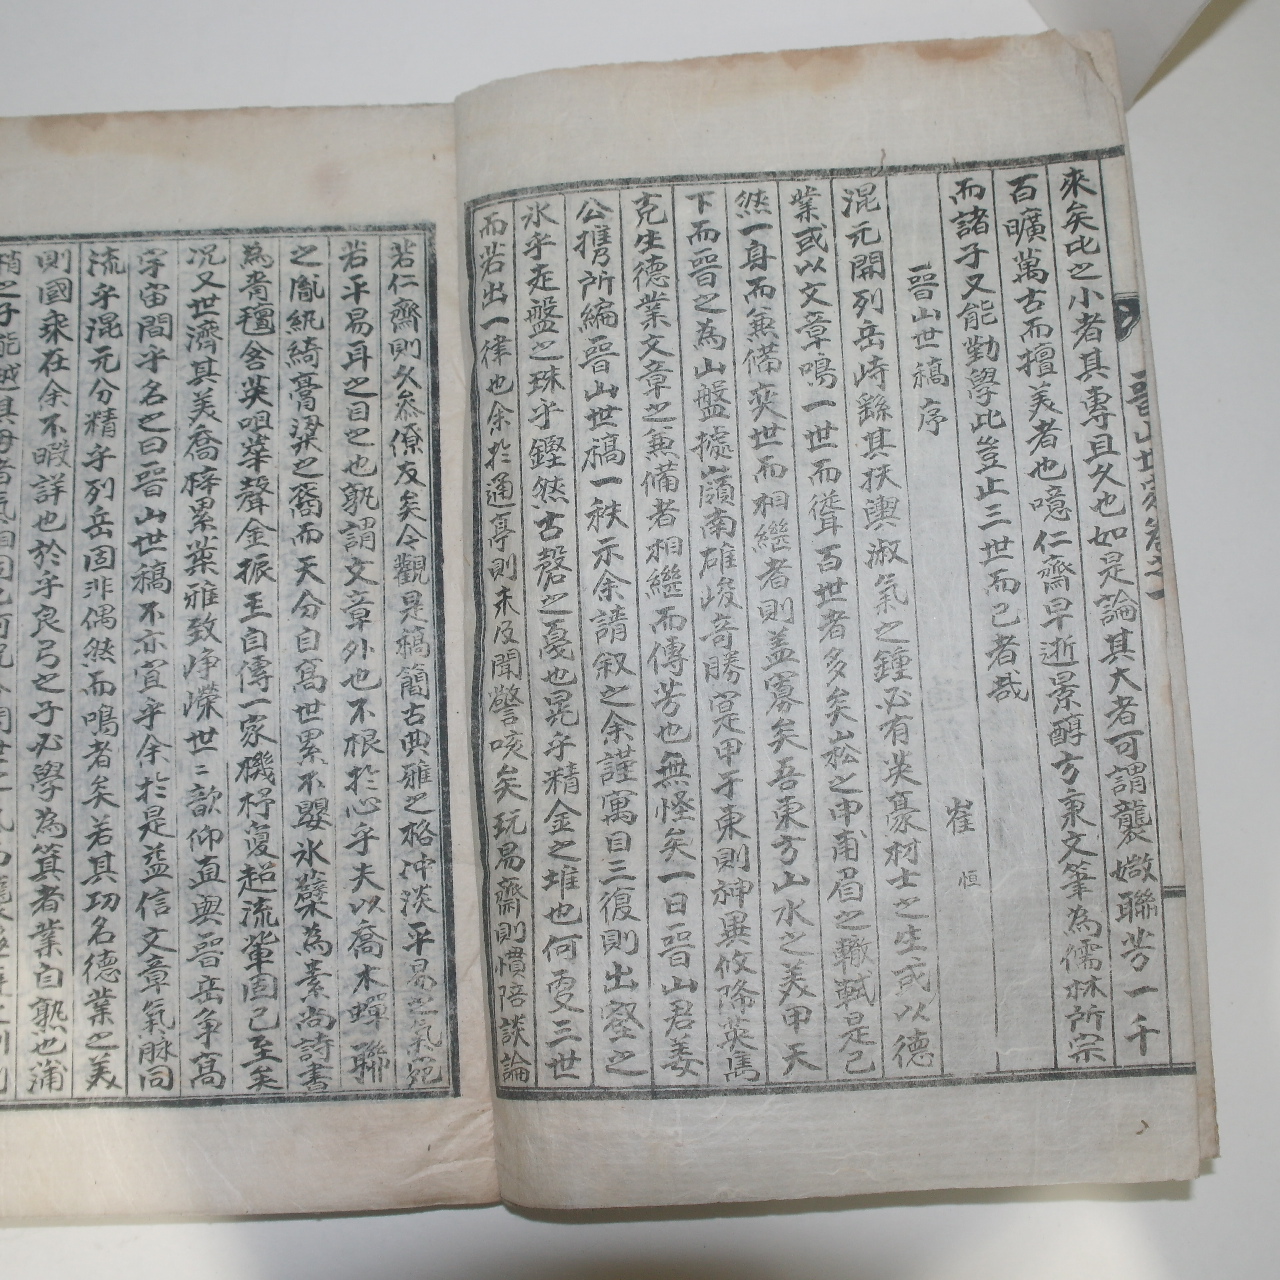 來矣比之小者其專且久也如是論其大者可謂襲媺聯芳一千
百曠萬古而擅美者也噫仁齋早逝景醇方秉文筆為儒林所宗
而諸子又能勤學此豈止三世而已者哉
崔恒
晉山世稿序
混元開列岳峙繇其扶輿淑氣之鍾必有英豪材士之生或以德
業或以文章鳴一世而聳百世者多矣山松之申甫眉之轍軾是已
然一身而兼備奕世而相繼者則盖寡矣吾東方山水之美甲天
下而晉之為山盤據嶺南雄峻奇勝寔甲于東則神異攸降英雋
克生德業文章之兼備者相繼而傳芳也無怪矣一日晉山君姜
公携所編晉山世稿一秩示余請叙之余謹寓目三復則出壑之
氷乎走盤之珠乎鏗然古磬之戞也晃乎精金之堆也何更三世
而若出一律也余於通亭則未及聞謦咳矣玩易齋則慣陪談論
若仁齋則久忝僚友矣今觀是稿簡古典雅之格冲淡平易之氣宛
若平易耳之目之也孰謂文章外也不根於心乎夫以喬木蟬聯
之胤紈綺膏粱之裔而天分自高世累不嬰氷蘗為素尚詩書
為耆羶含英咀華聲金振玉自傳一家機杼夐超流輩固已至矣
况又世濟其美喬梓累葉雅致崢嶸世〻歆仰直與晉岳争高
宇宙間乎名之曰晉山世稿不亦宜乎余於是益信文章氣脉同
流乎混元分精乎列岳固非偶然而鳴者矣若其功名德業之美
則國乘在余不暇詳也於乎良弓之子必學為箕者業自熟也蒲